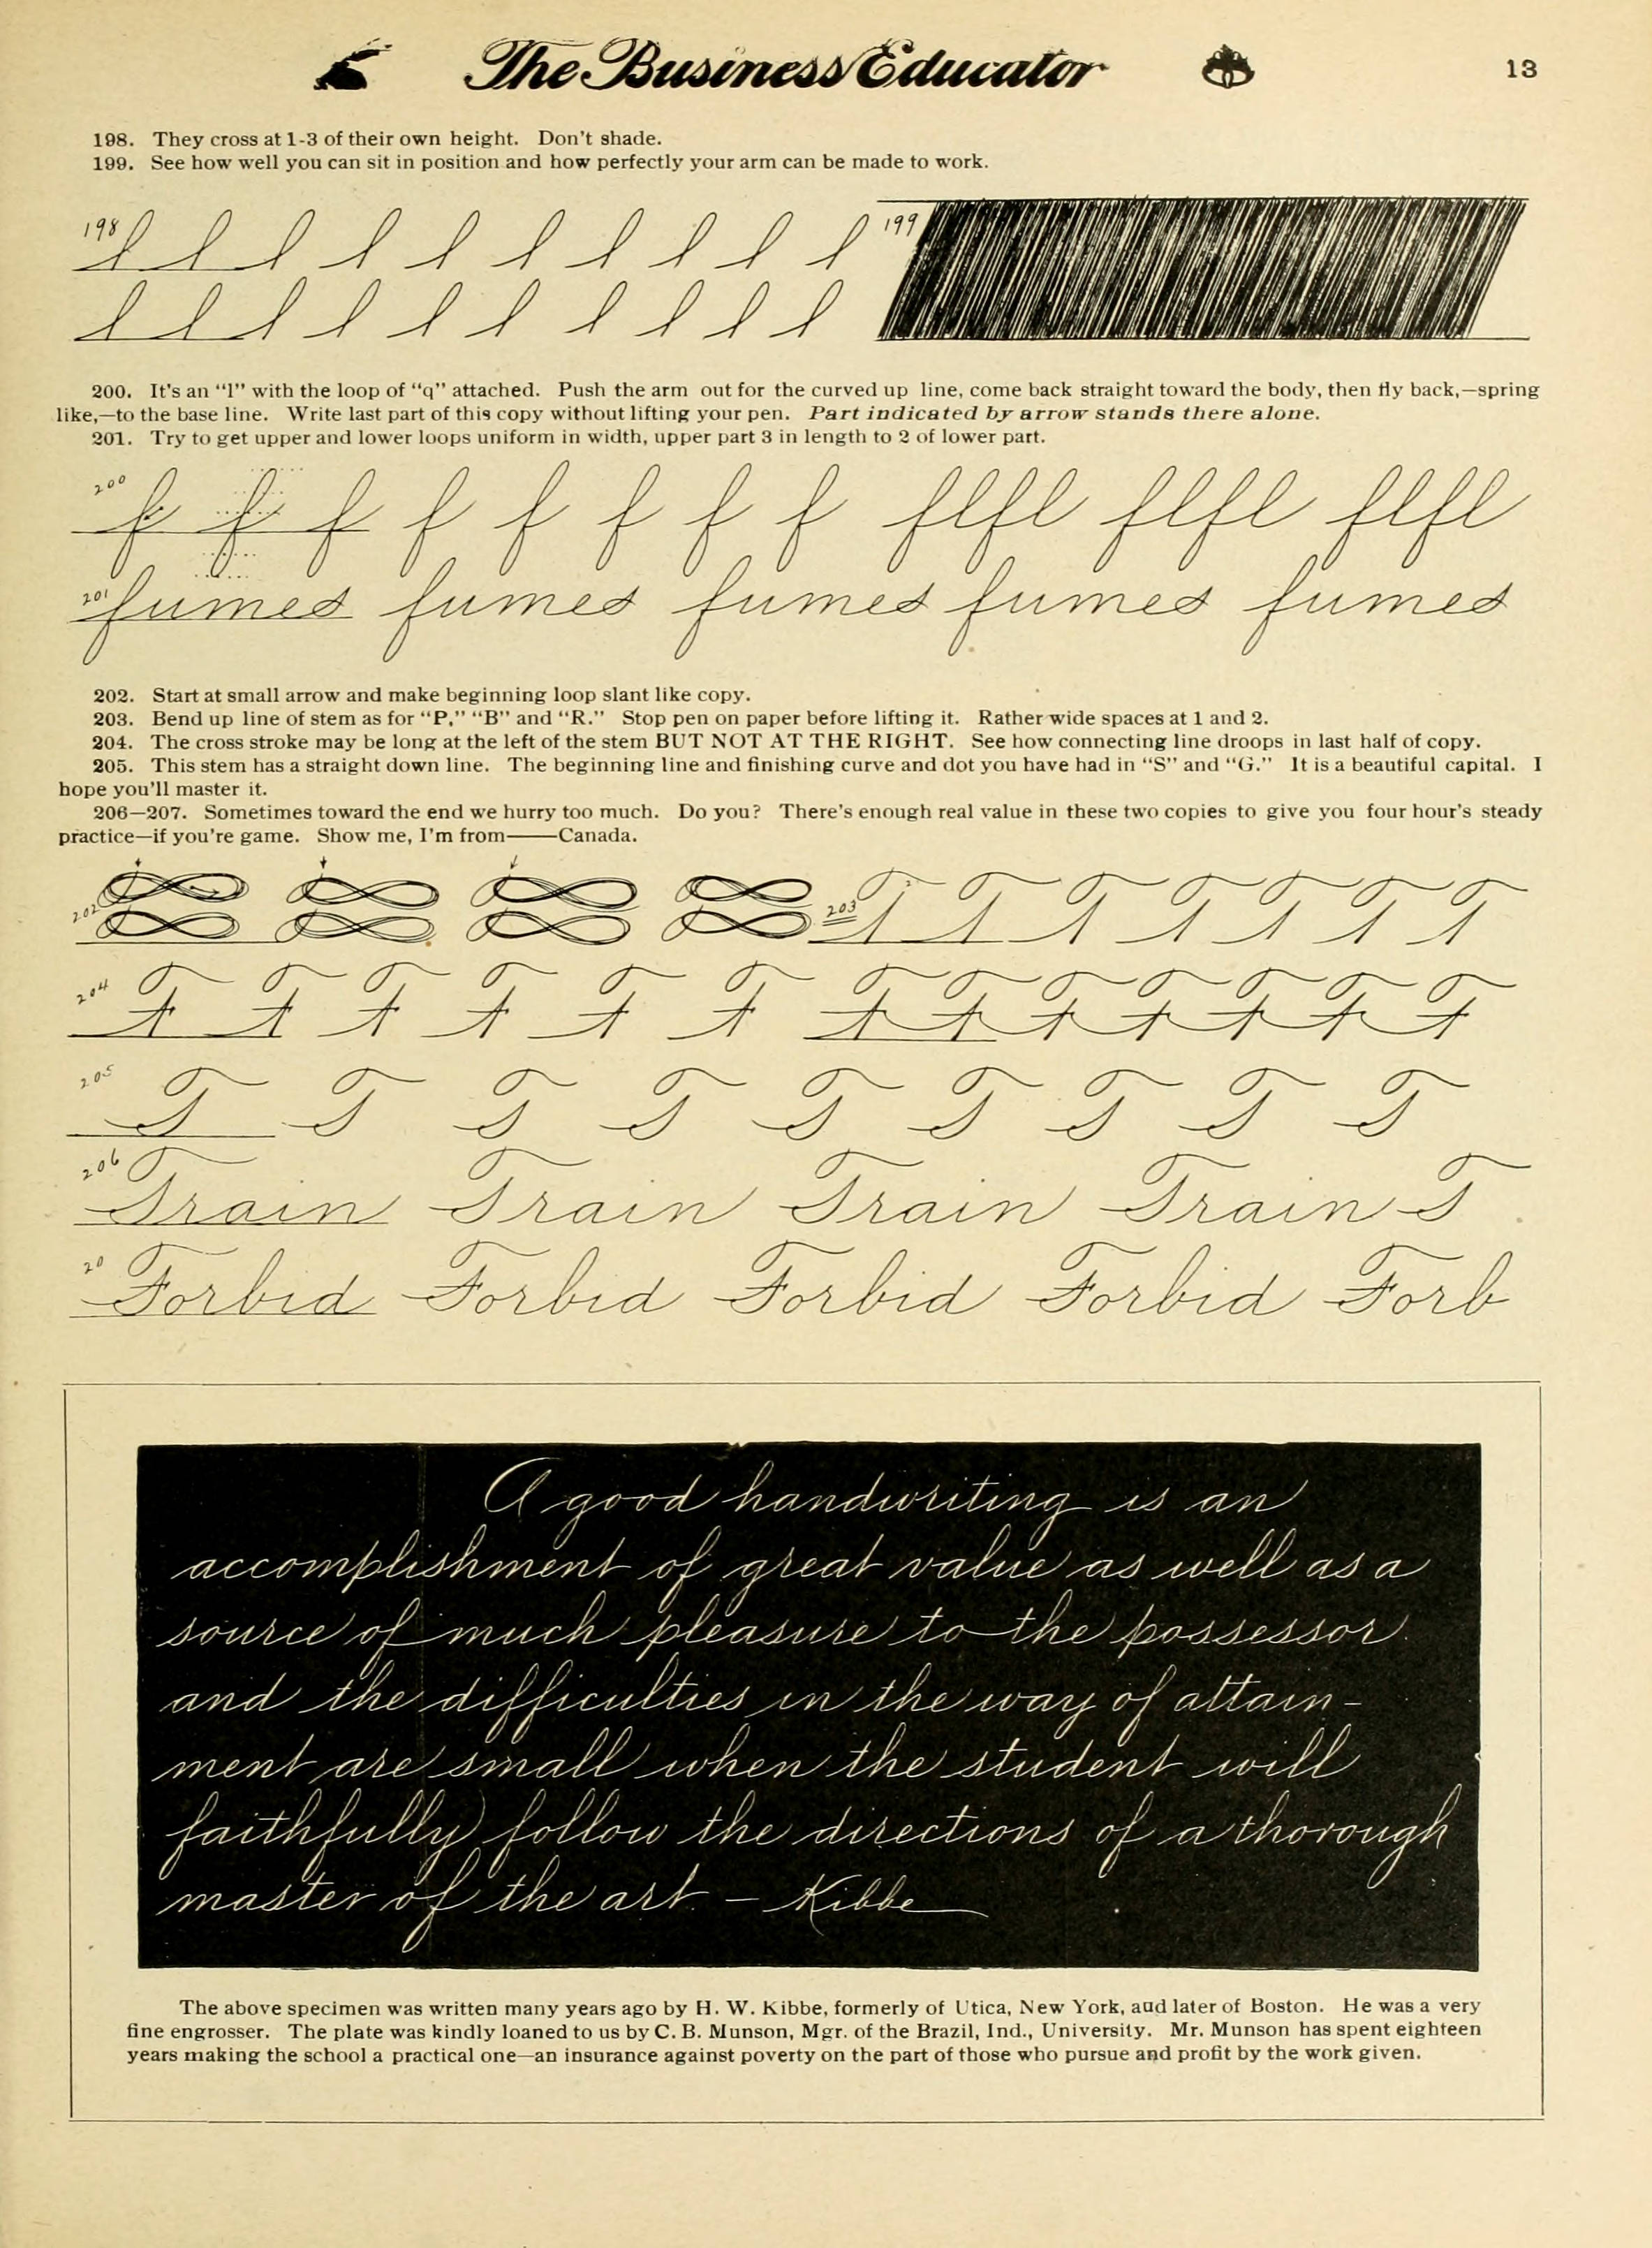 The Business Educator 13
198. They cross at 1-3 of their own height. Don't shade.
199. See how well you can sit in position and how perfectly your arm can be made to work.
198 l l l l l l l l l l 199
l l l l l l l l l l
200. It's an “l” with the loop of “q” attached. Push the arm out for the curved up line, come back straight toward the body, then fly back,—spring
like,—to the base line. Write last part of this copy without lifting your pen. Part indicated by arrow stands there alone.
201. Try to get upper and lower loops uniform in width, upper part 3 in length to 2 of lower part.
200 f f f f f f f f flfl flfl flfl
201 fumes fumes fumes fumes fumes
202. Start at small arrow and make beginning loop slant like copy.
203. Bend up line of stem as for “P,” “B” and “R.” Stop pen on paper before lifting it. Rather wide spaces at 1 and 2.
204. The cross stroke may be long at the left of the stem BUT NOT AT THE RIGHT. See how connecting line droops in last half of copy.
205. This stem has a straight down line. The beginning line and finishing curve and dot you have had in “S” and “G.” It is a beautiful capital. I
hope you'll master it.
206—207. Sometimes toward the end we hurry too much. Do you? There's enough real value in these two copies to give you four hour's steady
practice—if you're game. Show me, I'm from——Canada.
202 203 T T T T T T T
204 F F F F F F F F F F F F F
205 T T T T T T T T T
206 Train Train Train Train T
20 Forbid Forbid Forbid Forbid Forb
A good handwriting is an
accomplishment of great value as well as a
source of much pleasure to the possessor
and the difficulties in the way of attain-
ment are small when the student will
faithfully follow the directions of a thorough
master of the art. - Kibbe
The above specimen was written many years ago by H. W. Kibbe, formerly of Utica, New York, aud later of Boston. He was a very
fine engrosser. The plate was kindly loaned to us by C. B. Munson, Mgr. of the Brazil, Ind., University. Mr. Munson has spent eighteen
years making the school a practical one—an insurance against poverty on the part of those who pursue and profit by the work given.